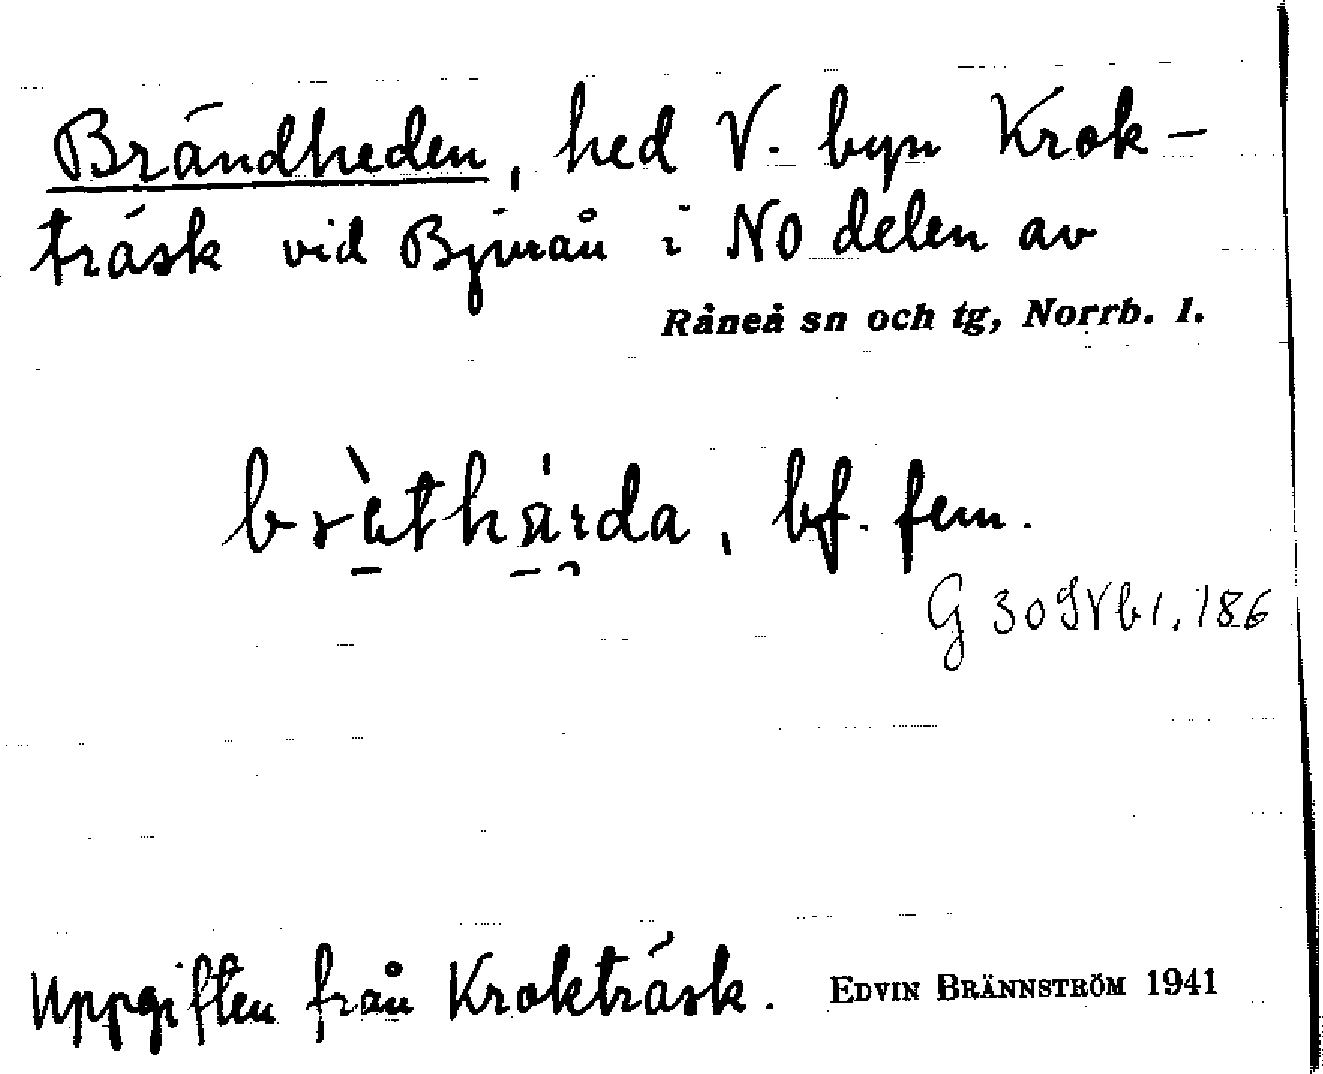 Brändheden, hed V. byn Krok-
träsk vid Bjurån i NO delen av
Råneå sn och tg, Norrb. l.
bf. fem.
G 30 Nb 1, 186
Uppgiften från Krokträsk. EDVIN BRÄNNSTRÖM 1941